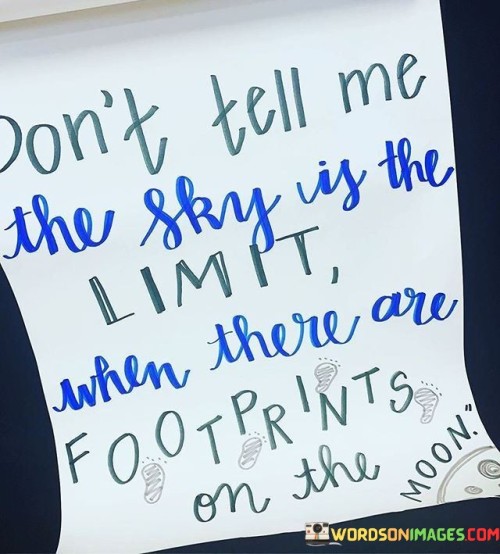 Don't tell me
the sky is the
LIMIT,
when there are
FOOTPRINTS
on the
MOON."
WORDSONIMAGES.COM